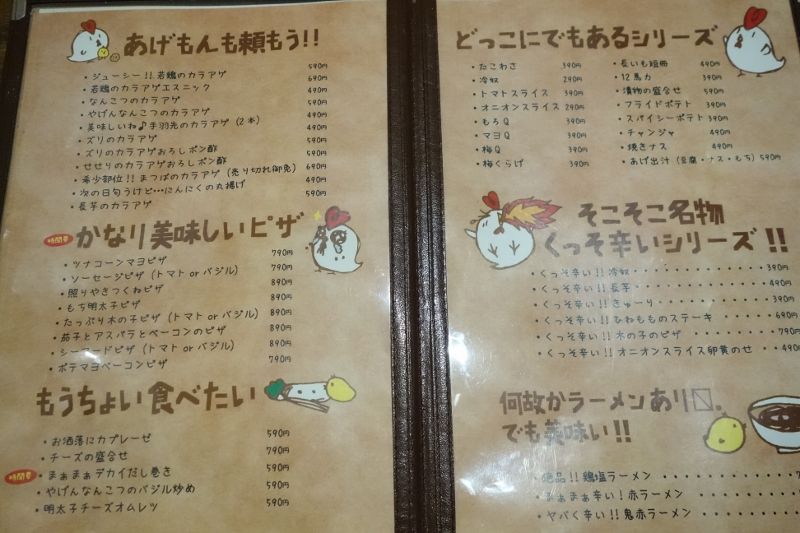 あげもんも頼もう!!
・ジューシー!!若鶏のカラアゲ 590円
・若鶏のカラアゲエスニック 690円
・なんこつのカラアゲ 490円
・やげんなんこつのカラアゲ 490円
・美味しいね♪手羽先のカラアゲ(2本) 490円
・ズリのカラアゲ 490円
・ズリのカラアゲおろしポン酢 590円
・せせりのカラアゲおろしポン酢 690円
・希少部位!!まつばのカラアゲ(売り切れ御免) 490円
・次の日匂うけど…にんにくの丸揚げ 490円
・長芋のカラアゲ 590円
時間要 かなり美味しいピザ
・ツナコーンマヨピザ 790円
・ソーセージピザ(トマト or バジル) 790円
・照りやきつくねピザ 890円
・もち明太子ピザ 890円
・たっぷり木の子ピザ(トマト or バジル) 890円
・茄子とアスパラとベーコンのピザ 890円
・シーフードピザ(トマト or バジル) 890円
・ポテマヨベーコンピザ 790円
もうちょい食べたい
・お洒落にカプレーゼ 590円
・チーズの盛合せ 790円
時間要 ・まぁまぁデカイだし巻き 590円
・やげんなんこつのバジル炒め 590円
・明太子チーズオムレツ 590円
どっこにでもあるシリーズ
・たこわさ 390円
・冷奴 290円
・トマトスライス 390円
・オニオンスライス 290円
・もろQ 390円
・マヨQ 390円
・梅Q 390円
・梅くらげ 390円
・長いも短冊 490円
・12馬力 490円
・漬物の盛合せ 590円
・フライドポテト 390円
・スパイシーポテト 390円
・チャンジャ 490円
・焼きナス 490円
・あげ出汁(豆腐・ナス・もち) 590円
そこそこ名物
くっそ辛いシリーズ!!
・くっそ辛い!!冷奴 390円
・くっそ辛い!!長芋 490円
・くっそ辛い!!きゅーり 390円
・くっそ辛い!!ひねもものステーキ 690円
・くっそ辛い!!木の子のピザ 790
・くっそ辛い!!オニオンスライス卵黄のせ 490
何故かラーメンあり〼。
でも美味い!!
・絶品!!鶏塩ラーメン
・まぁまぁ辛い!赤ラーメン
・ヤバく辛い!!鬼赤ラーメン